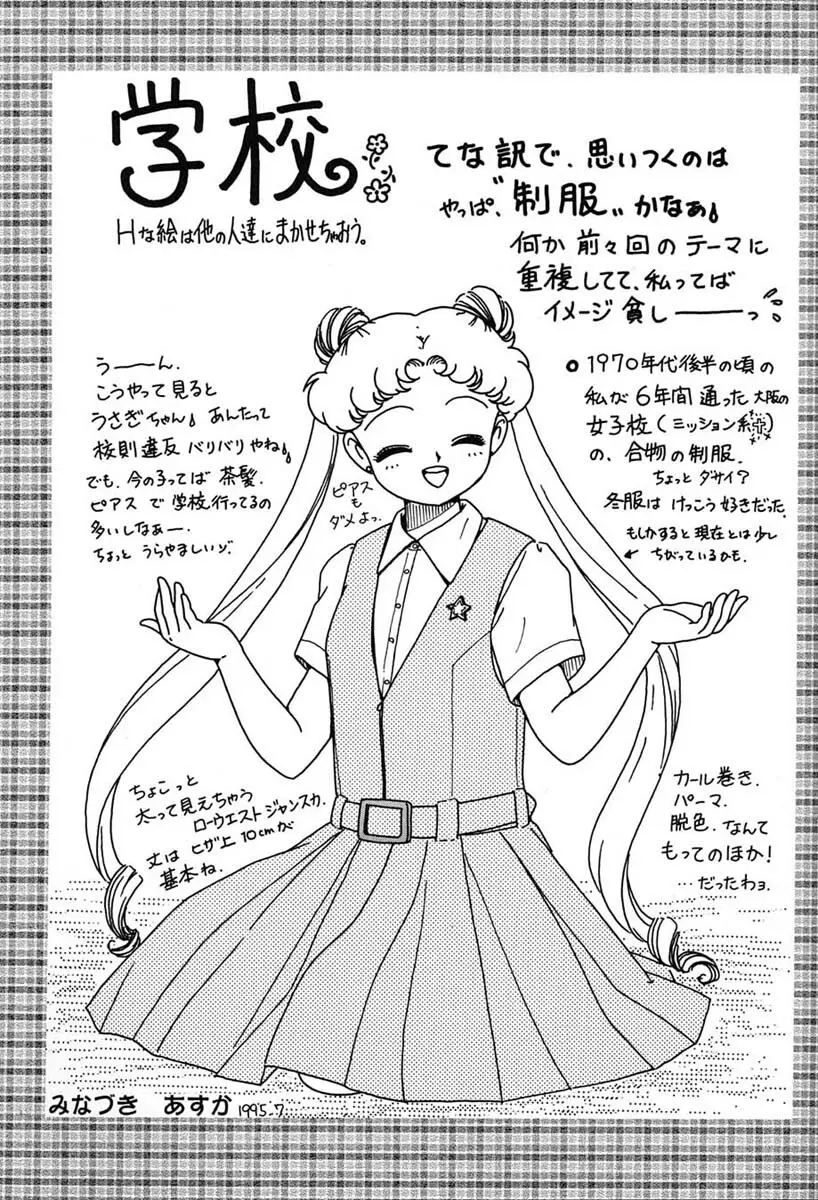 学校。
Hな絵は他の人達にまかせちゃおう。
てな訳で、思いつくのは
やっぱ、〝制服〟かなぁ
何か前々回のテーマに
重複してて、私ってば
イメージ貧し――っ
う――ん.
こうやって見ると
うさぎちゃん あんたって
校則違反バリバリやね
でも、今の子ってば茶髪.
ピアスで学校行ってるの
多いしなぁー.
ちょっとうらやましいゾ.
ピアス
も
ダメよっ.
1970年代後半の頃の
私が6年間通った大阪の
女子校(ミッション系)
の、合物の制服.
ちょっとダサイ?
冬服はけっこう好きだった.
もしかすると現在とは少し
←ちがっているかも.
ちょこっと
太って見えちゃう
ローウエストジャンスカ.
丈はヒザ上10cmが
基本ね.
カール巻き.
パーマ.
脱色.なんて
もってのほか!
…だったわョ.
みなづき あすか 1995.7